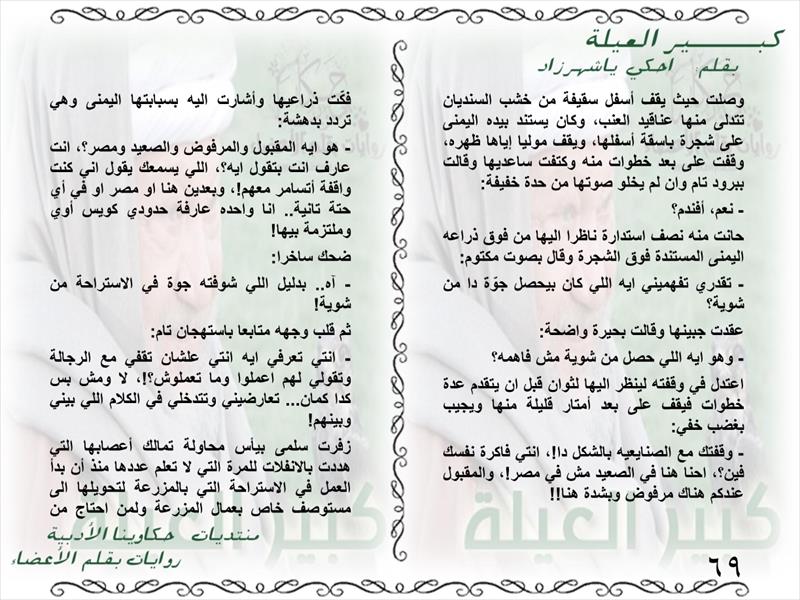 كبير العيلة
بقلم احكي ياشهرزاد
وصلت حيث يقف أسفل سقيفة من خشب السنديان
تتدلى منها عناقيد العنب، وكان يستند بيده اليمنى
على شجرة باسقة أسفلها، ويقف موليا إياها ظهره،
وقفت على بعد خطوات منه وكتفت ساعديها وقالت
ببرود تام وان لم يخلو صوتها من حدة خفيفة:
- نعم، أفندم؟
حانت منه نصف استدارة ناظرا اليها من فوق ذراعه
اليمنى المستندة فوق الشجرة وقال بصوت مكتوم:
- تقدري تفهميني ايه اللي كان بيحصل جوّة دا من
شوية؟
عقدت جبينها وقالت بحيرة واضحة:
- وهو ايه اللي حصل من شوية مش فاهمه؟
اعتدل في وقفته لينظر اليها لثوان قبل ان يتقدم عدة
خطوات فيقف على بعد أمتار قليلة منها ويجيب
بغضب خفي:
- وقفتك مع الصنايعيه بالشكل دا!، انتي فاكرة نفسك
فين؟، احنا هنا في الصعيد مش في مصر!، والمقبول
عندكم هناك مرفوض وبشدة هنا!!
فكّت ذراعيها وأشارت اليه بسبابتها اليمنى وهي
تردد بدهشة:
- هو ايه المقبول والمرفوض والصعيد ومصر؟، انت
عارف انت بتقول ايه؟، اللي يسمعك يقول اني كنت
واقفة أتسامر معهم!، وبعدين هنا او مصر او في أي
حتة تانية.. انا واحده عارفة حدودي كويس أوي
وملتزمة بيها!
ضحك ساخرا:
- آه.. بدليل اللي شوفته جوة في الاستراحة من
شوية!
ثم قلب وجهه متابعا باستهجان تام:
- انتي تعرفي ايه انتي علشان تقفي مع الرجالة
وتقولي لهم اعملوا وما تعملوش؟!، لا ومش بس
كدا كمان... تعارضيني وتتدخلي في الكلام اللي بيني
وبينهم!
زفرت سلمى بيأس محاولة تمالك أعصابها التي
هددت بالانفلات للمرة التي لا تعلم عددها منذ أن بدأ
العمل في الاستراحة التي بالمزرعة لتحويلها الى
مستوصف خاص بعمال المزرعة ولمن احتاج من
منتديات حكاوينا الأدبية
روايات بقلم الأعضاء
٦٩
كبير العيلة
كبير العيلة